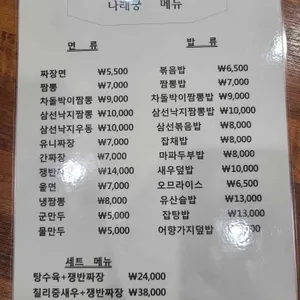 나래궁 메뉴
면 류
짜장면 ₩5,500
짬뽕 ₩7,000
차돌박이짬뽕 ₩9,000
삼선낙지짬뽕 ₩10,000
삼선낙지우동 ₩10,000
유니짜장 ₩7,000
간짜장 ₩7,000
쟁반짜장 ₩14,000
울면 ₩7,000
냉짬뽕 ₩8,000
군만두 ₩5,000
물만두 ₩5,000
밥 류
볶음밥 ₩6,500
짬뽕밥 ₩7,000
차돌박이짬뽕밥 ₩9,000
삼선낙지짬뽕밥 ₩10,000
삼선볶음밥 ₩8,000
잡채밥 ₩8,000
마파두부밥 ₩8,000
새우덮밥 ₩10,000
오므라이스 ₩6,500
유산슬밥 ₩13,000
잡탕밥 ₩13,000
어향가지덮밥 ₩10,000
세트 메뉴
탕수육+쟁반짜장 ₩24,000
칠리중새우+쟁반짜장 ₩38,000